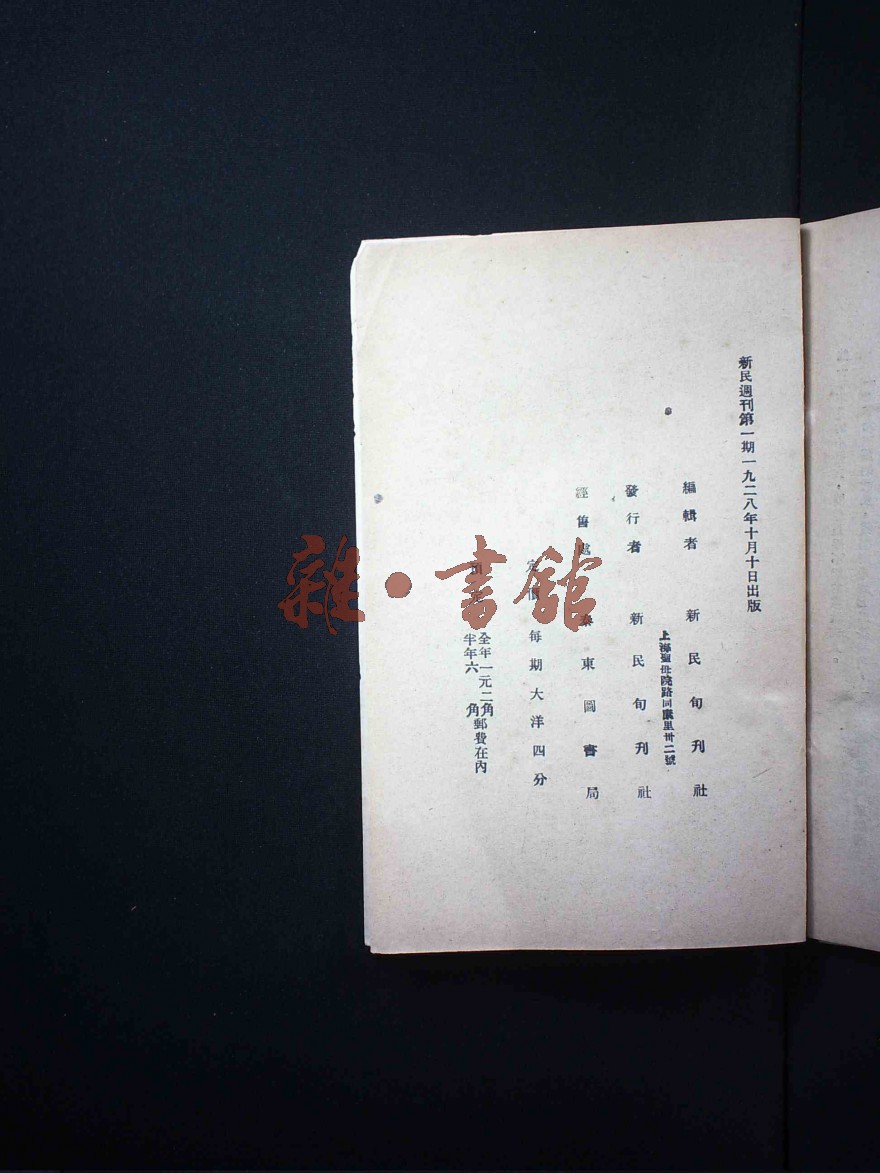 新民週刊第一期一九二八年十月十日出版
編輯者 新民旬刊社
上海聖母院路同康里卅二號
發行者 新民旬刊社
經售處 泰東圖書局
定價 每期大洋四分
預定 全年一元二角
半年六角
郵費在內
雜·書館